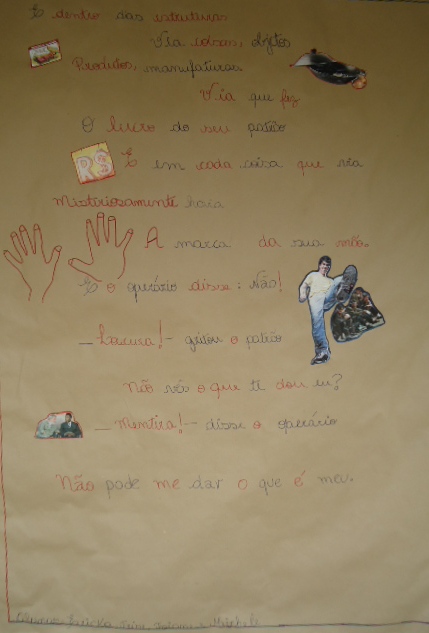 E dentro das estruturas
Via coisas, objetos
Produtos, manufaturas
Via que faz
O lucro do seu patrão
R$
E em cada coisa que via
Misteriosamente havia
A marca da sua mão.
E o operário disse: Não!
_ Loucura! - gritou o patrão
Não vês o que ti dou eu?
_ Mentira! - disse o operário
Não pode me dar o que é meu.